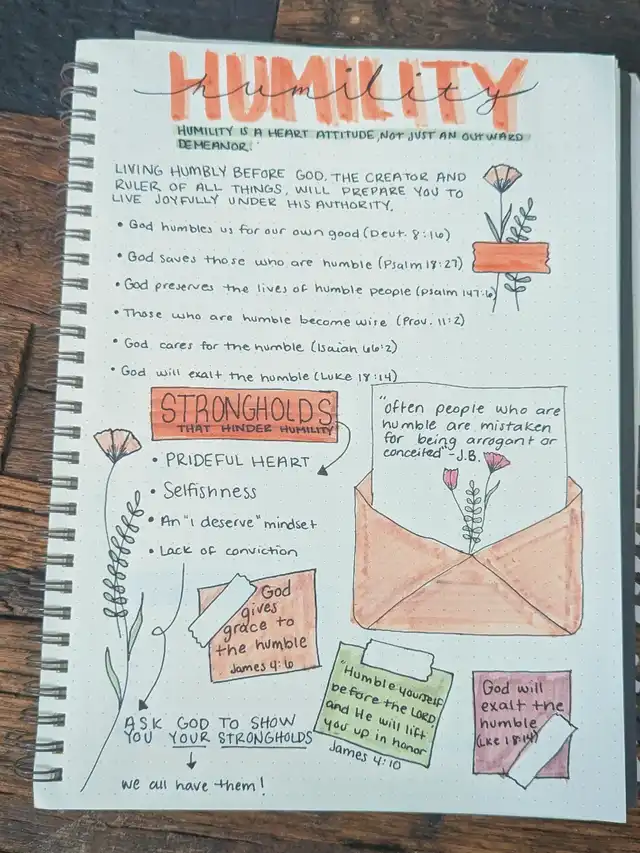 HUMILITY
humility
HUMILITY IS A HEART ATTITUDE, NOT JUST AN OUTWARD
DEMEANOR.
LIVING HUMBLY BEFORE GOD, THE CREATOR AND
RULER OF ALL THINGS, WILL PREPARE YOU TO
LIVE JOYFULLY UNDER HIS AUTHORITY.
• God humbles us for our own good (Deut. 8:16)
• God saves those who are humble (Psalm 18:27)
• God preserves the lives of humble people (Psalm 147:6)
• Those who are humble become wise (Prov. 11:2)
• God cares for the humble (Isaiah 66:2)
• God will exalt the humble (Luke 18:14)
STRONGHOLDS
THAT HINDER HUMILITY
• PRIDEFUL HEART
• Selfishness
• An "i deserve" mindset
• Lack of conviction
"often people who are
humble are mistaken
for being arrogant or
conceited" -J.B.
God
gives
grace to
the humble
James 4:6
"Humble yourself
before the LORD,
and He will lift
you up in honor
James 4:10
God will
exalt the
humble
(Lke 18:14)
ASK GOD TO SHOW
YOU YOUR STRONGHOLDS
we all have them!